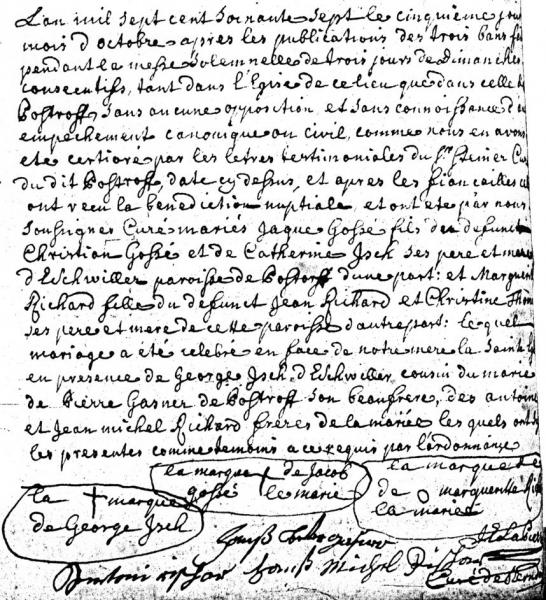 L'an mil sept cent soixante sept le cinquième jour
mois d'octobre apres les publications des trois bans
pendant la messe solemnelle de trois jours de Dimanches
consecutifs, tant dans l'Eglise de ce lieu que dans celle de
Postroff, sans aucune opposition et sans connoissance d'
empechement canonique ou civil, comme nous en avons
eté certioré par les letres testimoniales du Sr. Steiner Cu
du dit Postroff, date cy dessus, et apres les fiançailles
ont recu la benediction nuptiale, et ont eté par nous
soussigné Curé mariés Jaque Gossé fils du defunct
Christian Gossé et de Catherine Isch ses pere et mere
d'Eschwiller paroisse de Postroff d'une part: et Margueri
Richard fille du defunct Jean Richard et Christine Thom
ses pere et mere de cette paroisse d'autre part: le quel
mariage a été celebré en face de notre mere la Sainte
en presence de George Isch d'Eschwiller cousin du marié
de Pierre Gasner de Postroff son beaufrere, des antoine
et Jean michel Richard frères de la mariée les quels ont
les presentes comme temoins a ce requis par l'ordonnance
la marque de Jacob
Gossé le marié
la marque de
de marguerithe Ri
la mariée
la marque
de George Isch
Antoni
Michel
Curé de